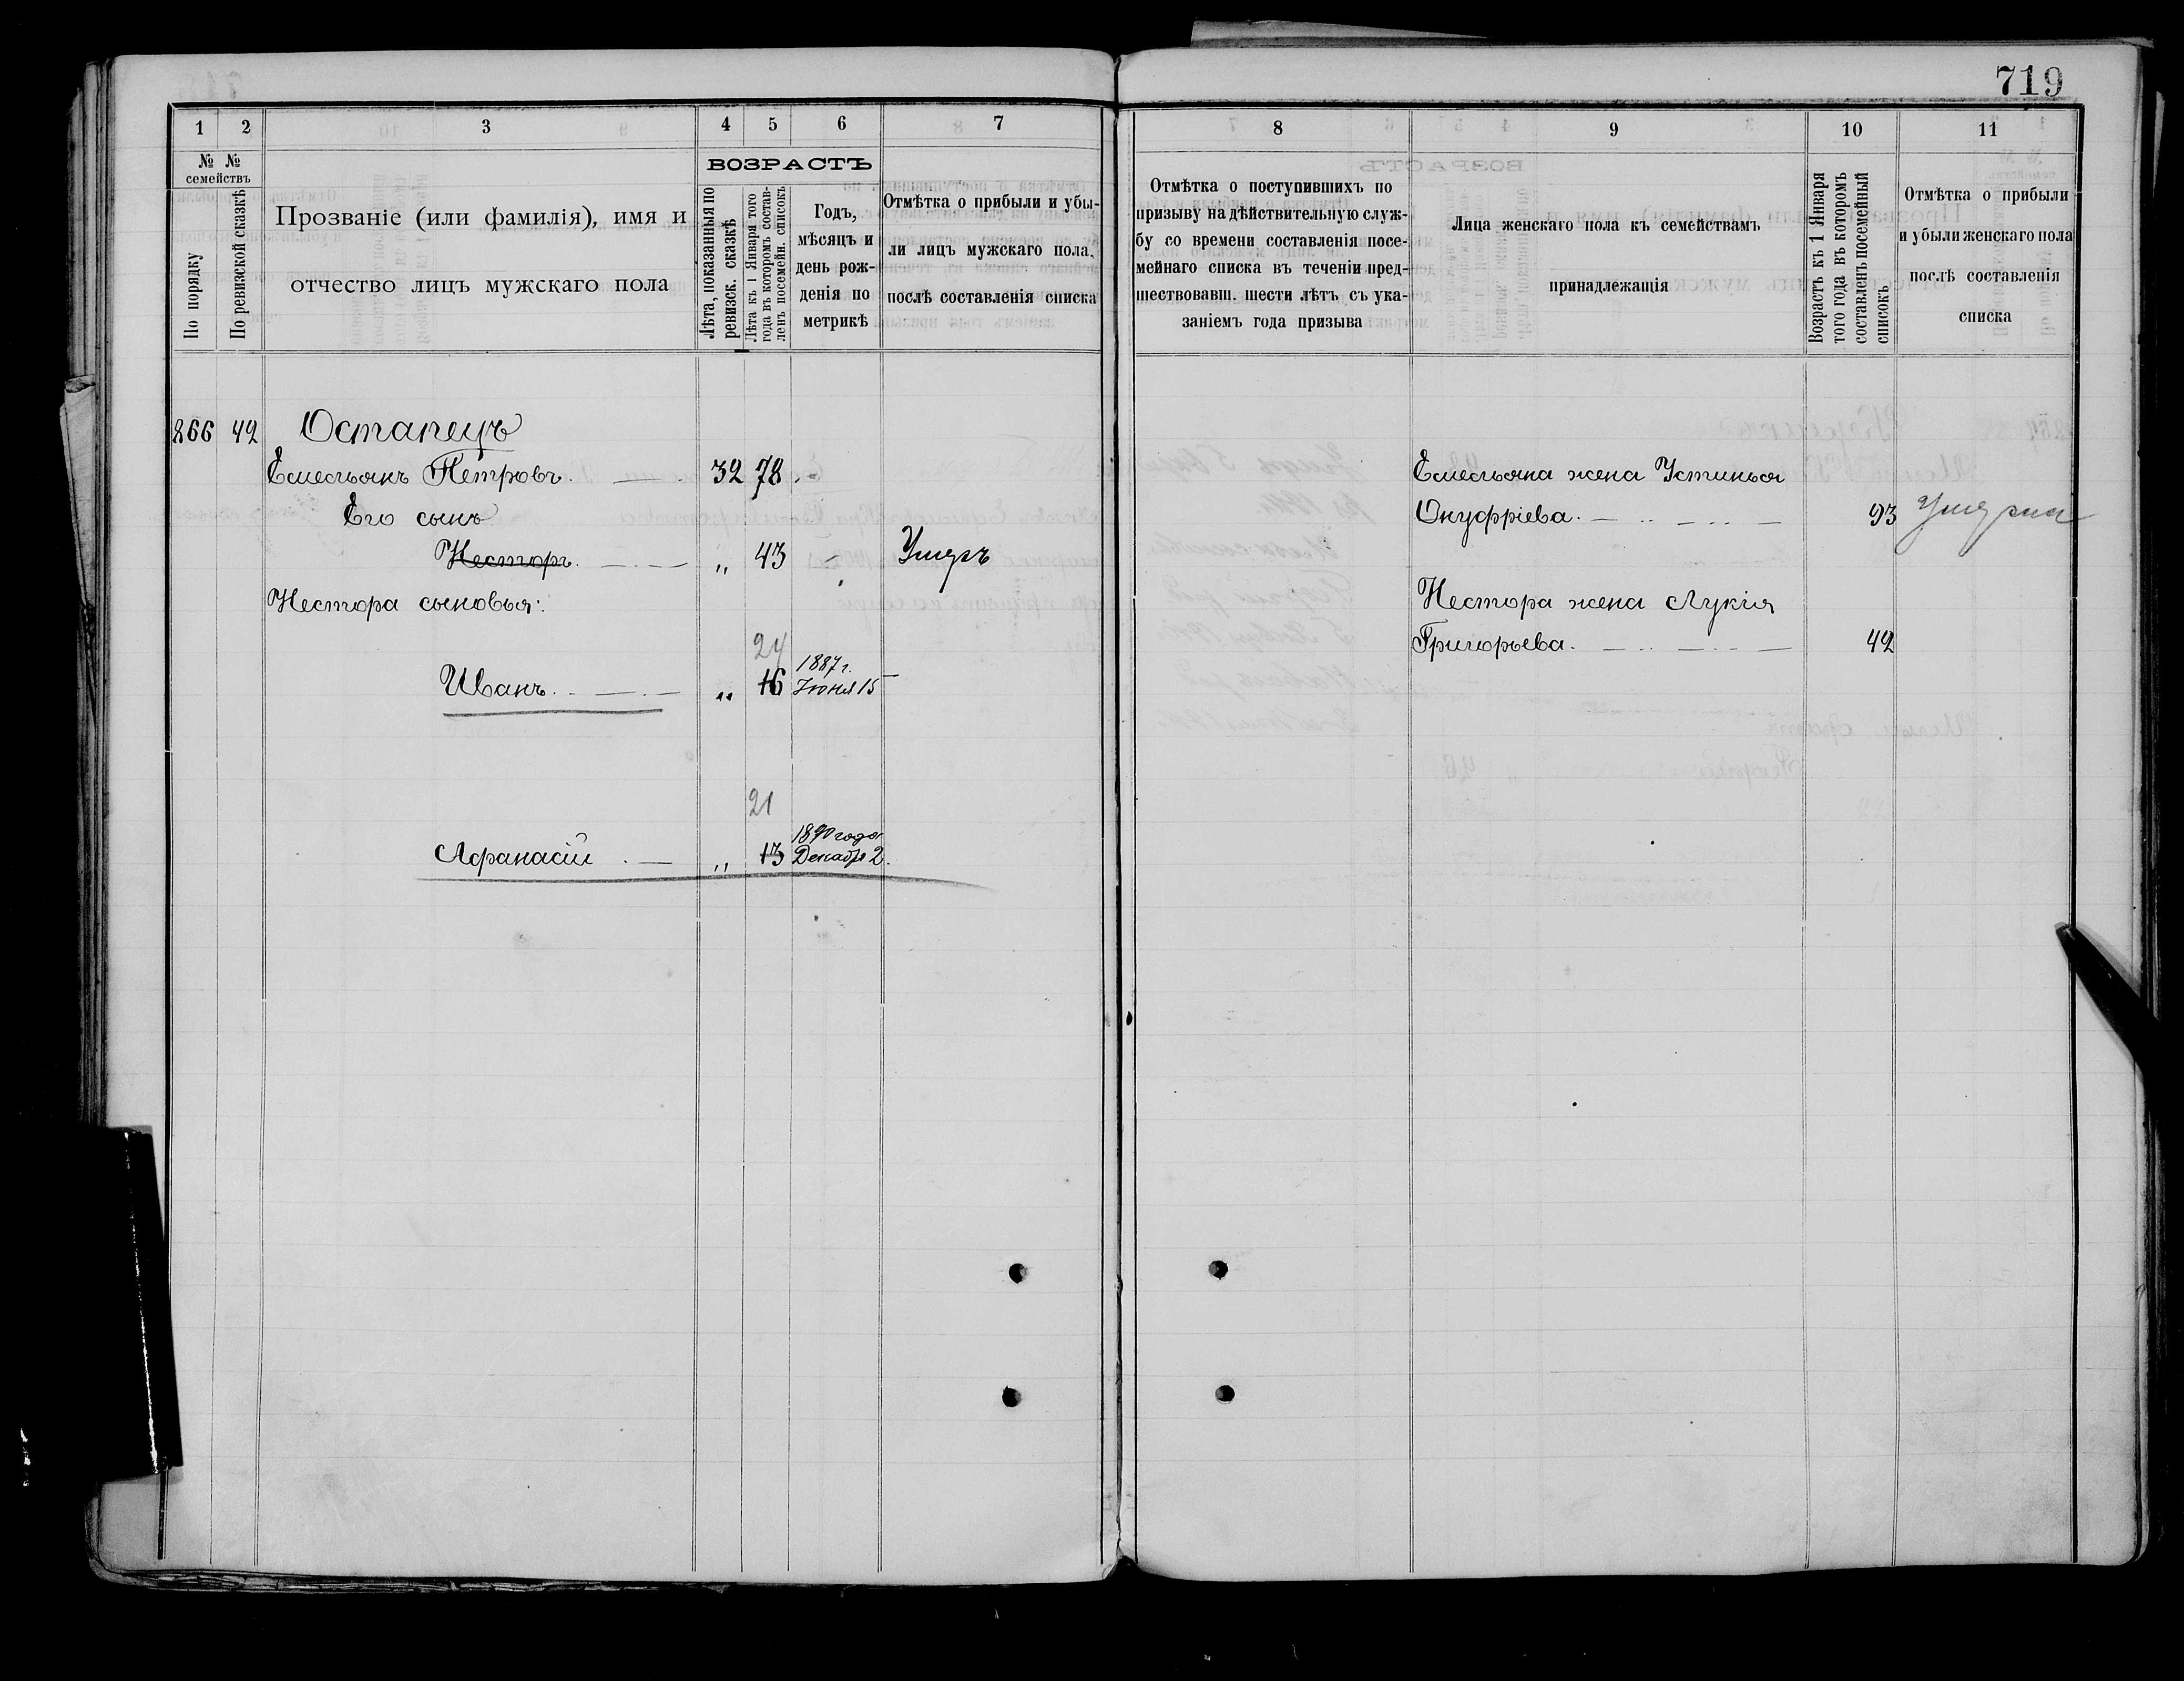 719
1 2 3 4 5 6 7
№ № семействъ
По порядку
По ревизской сказкѣ
Прозваніе (или фамилія), имя и
отчество лицъ мужскаго пола
ВОЗРАСТЪ
Лѣта, показанныя по
ревизск. сказкѣ
Лѣта къ 1 Января того
года въ которомъ состав-
ленъ посемейн. списокъ
Годъ,
мѣсяцъ и
день рож-
денія по
метрикѣ
Отмѣтка о прибыли и убы-
ли лицъ мужскаго пола,
послѣ составленія списка
866 42 Остапецъ
Емельянъ Петровъ. 32 78
Его сынъ
Несторъ. „ 43 Умеръ
Нестора сыновья:
24
1887 г.
Иванъ. „ 16 Іюня 15
21
1890 года
Афанасій „ 13 Декабр 2.
8 9 10 11
Отмѣтка о поступившихъ по
призыву на дѣйствительную служ-
бу со времени составленія посе-
мейнаго списка въ теченіи пред-
шествовавш. шести лѣтъ съ ука-
заніемъ года призыва
Лица женскаго пола къ семействамъ
принадлежащія
Возрастъ къ 1 Января
того года въ которомъ
составленъ посемейный
списокъ
Отмѣтка о прибыли
и убыли женскаго пола
послѣ составленія
списка
Емельяна жена Устинья
Онуфріева. 93 Умерла
Нестора жена Лукія
Григорьева. 42